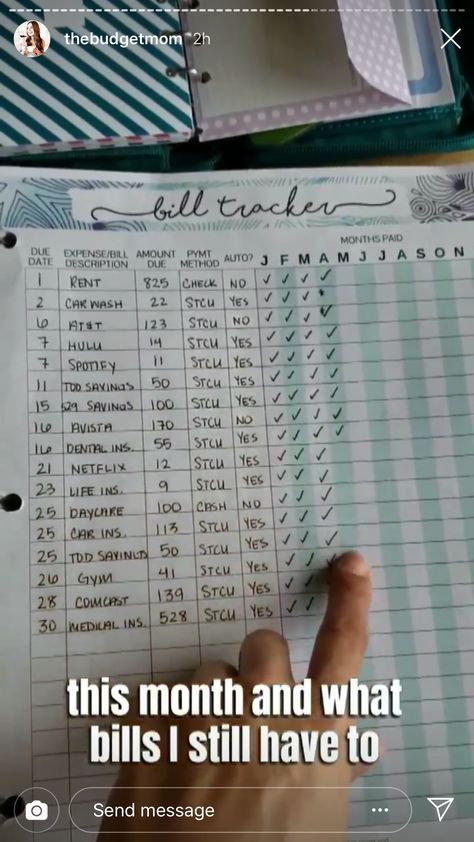 thebudgetmom 2h
bill tracker
MONTHS PAID
DUE DATE EXPENSE/BILL DESCRIPTION AMOUNT DUE PYMT METHOD AUTO? J F M A M J J A S O N
1 RENT 825 CHECK NO ✓ ✓ ✓ ✓
2 CAR WASH 22 STCU YES ✓ ✓ ✓
6 AT&T 123 STCU NO ✓ ✓ ✓ ✓
7 HULU 14 STCU YES ✓ ✓ ✓ ✓
7 SPOTIFY 11 STCU YES ✓ ✓ ✓ ✓
11 TDD SAVINGS 50 STCU YES ✓ ✓ ✓ ✓
15 529 SAVINGS 100 STCU YES ✓ ✓ ✓ ✓
16 AVISTA 170 STCU NO ✓ ✓ ✓ ✓
16 DENTAL INS. 55 STCU YES ✓ ✓ ✓ ✓
21 NETFLIX 12 STCU YES ✓ ✓ ✓
23 LIFE INS. 9 STCU YES ✓ ✓ ✓
25 DAYCARE 100 CASH NO ✓ ✓ ✓
25 CAR INS. 113 STCU YES ✓ ✓ ✓
25 TDD SAVINGS 50 STCU YES ✓ ✓ ✓
26 GYM 41 STCU YES ✓ ✓
28 COMCAST 139 STCU YES ✓ ✓
30 MEDICAL INS. 528 STCU YES ✓ ✓
this month and what
bills I still have to
Send message